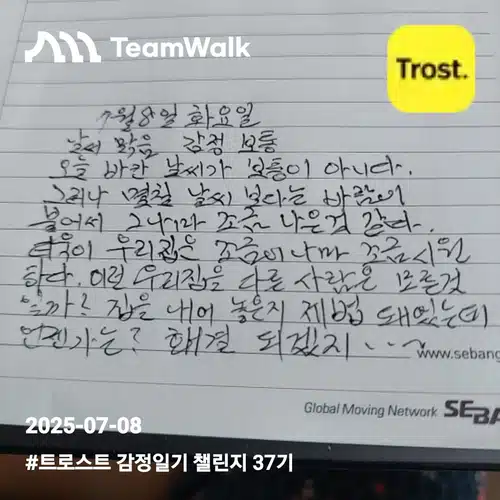 TeamWalk
Trost.
7월 8일 화요일
날씨 맑음 감정 보통
오늘 바깥 날씨가 보통이 아니다.
그러나 몇칠 날씨 보다는 바람이
불어서 그나마 조금 나은것 같다.
더욱이 우리집은 조금이나마 조금 시원
하다. 이런 우리집을 다른 사람은 모른것
일까? 집을 내어 놓은지 제법 돼었는데
언젠가는? 해결 되겠지...~
www.sebang
Global Moving Network SEBA
2025-07-08
#트로스트 감정일기 챌린지 37기